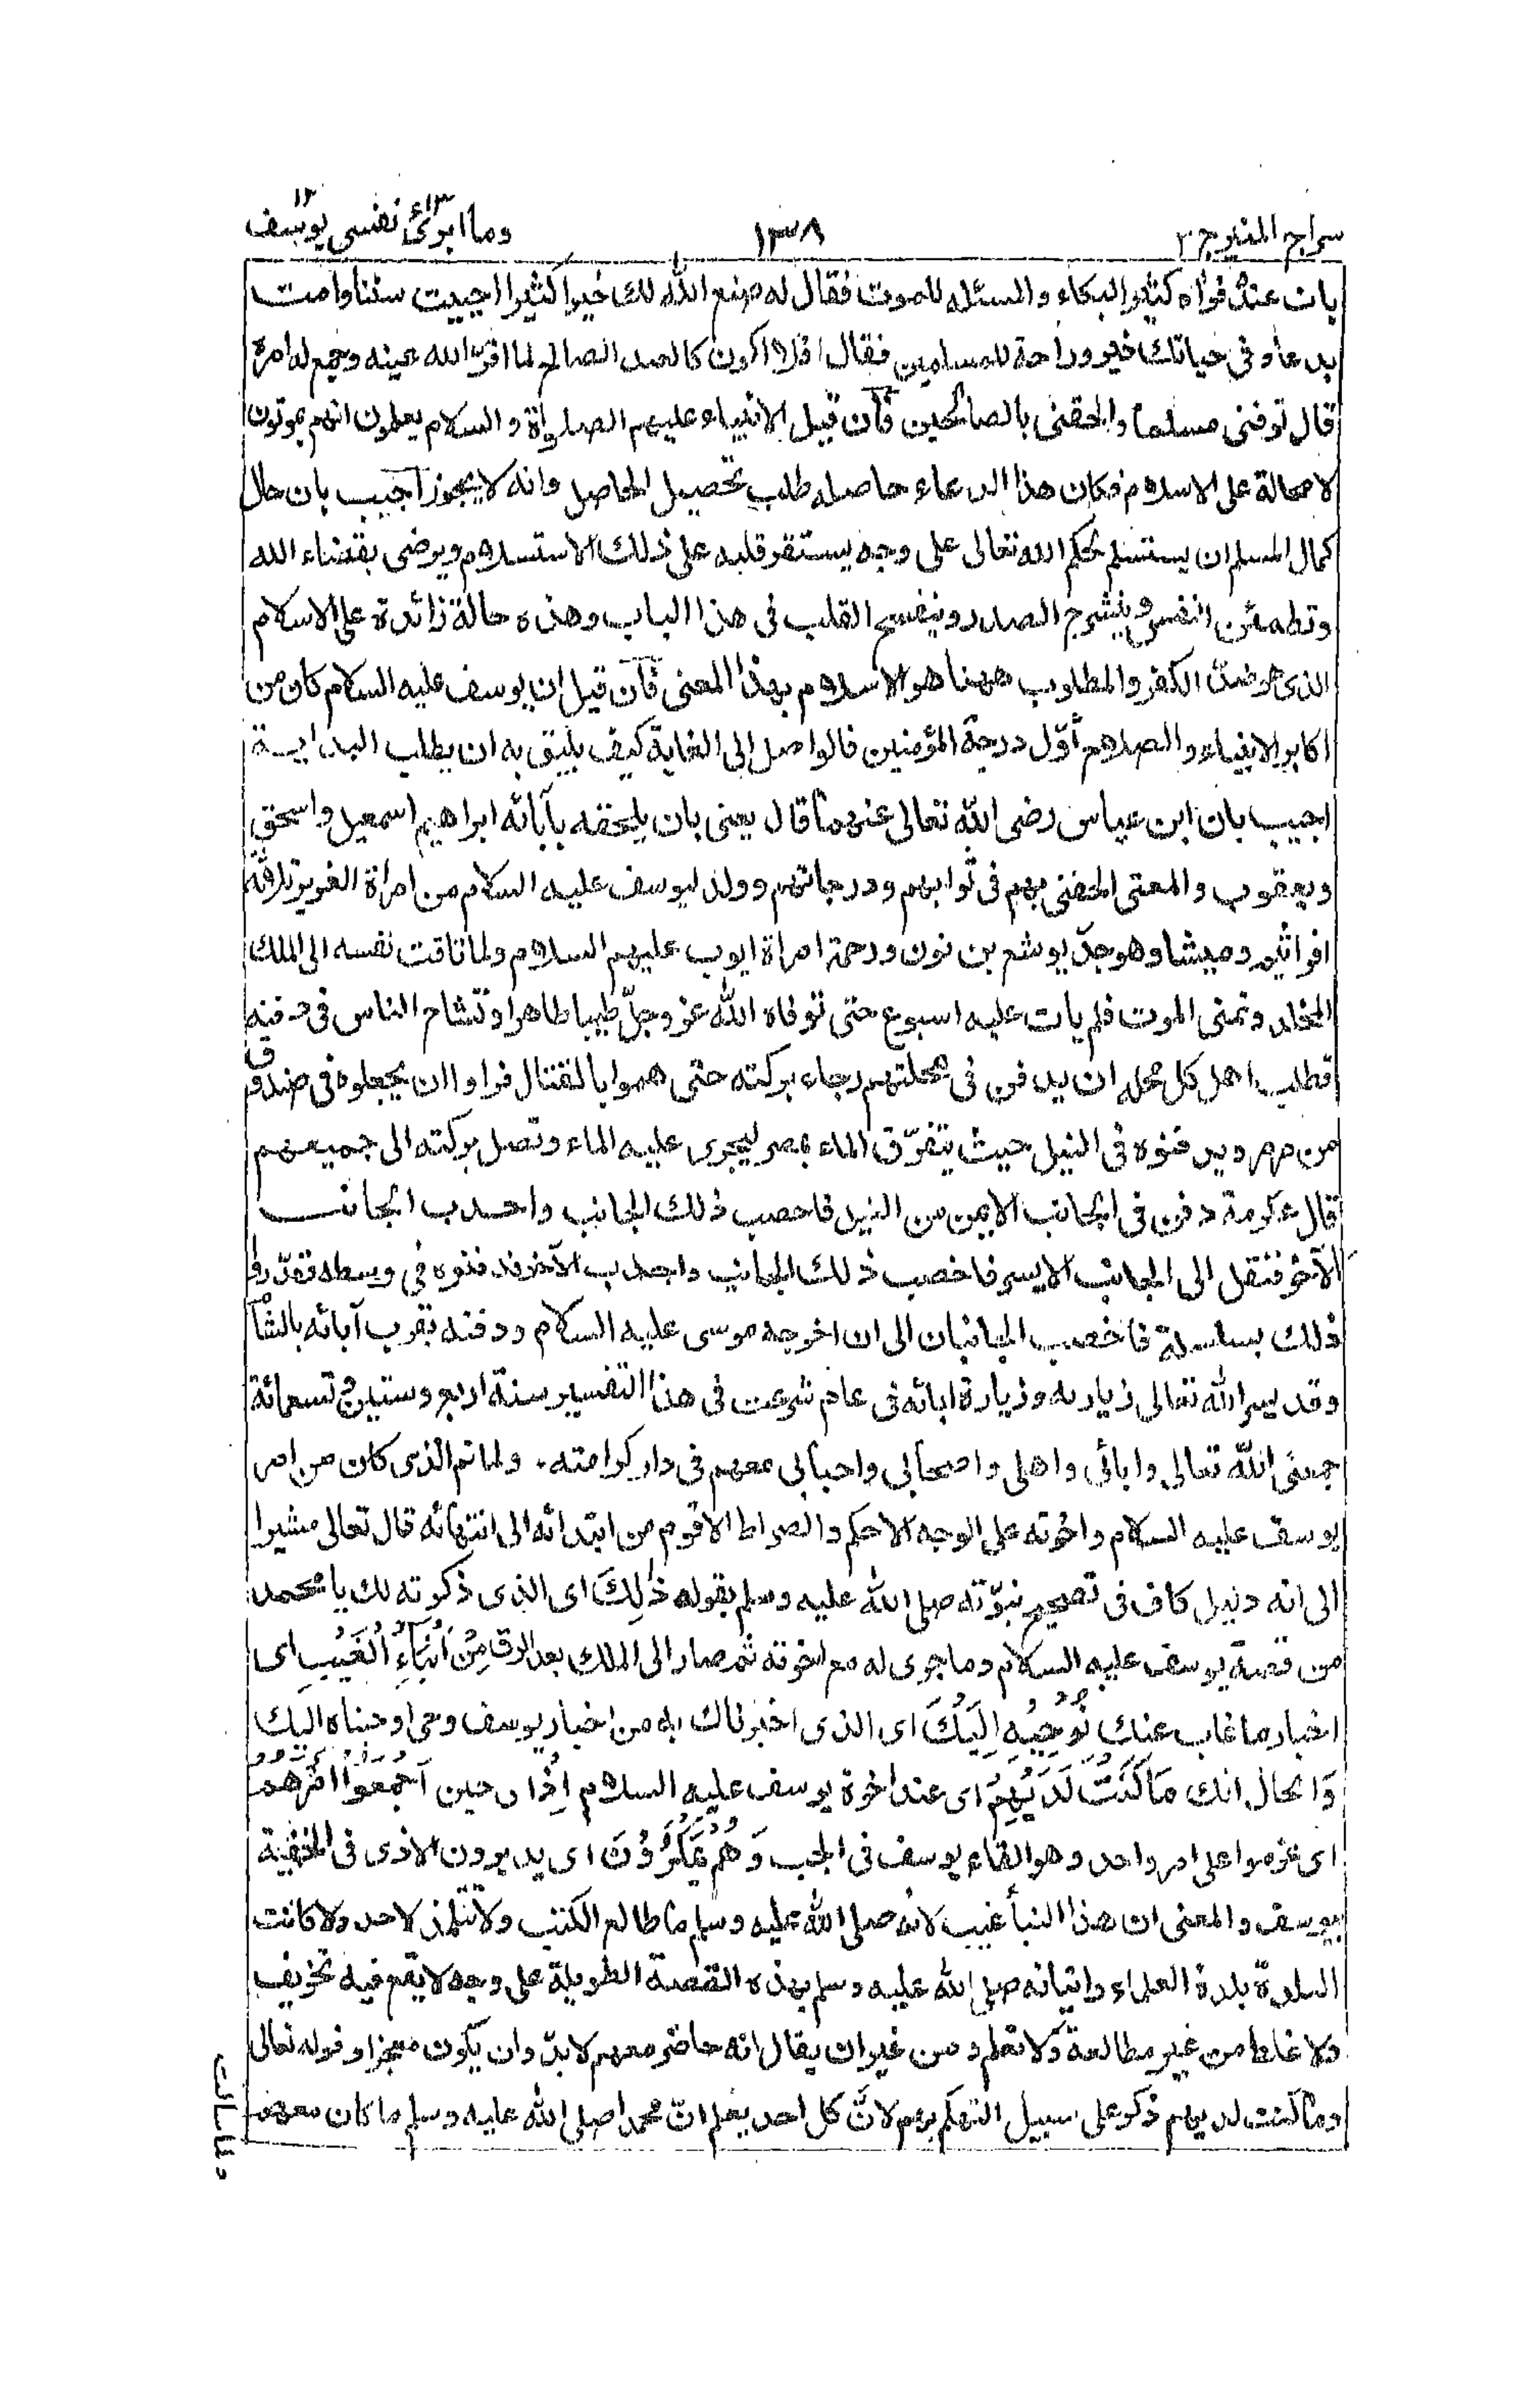 سراج المنير ج ٢
١٣٨
وما ابرئ ١٣ نفسى يوسف ١٢
بات عنده فرآه كثير البكاء والمسئلة للموت فقال له صنع الله لك خيرا كثيرا احييت سننا وامت
بدعا وفى حياتك خير وراحة للمسلمين فقال افلا اكون كالعبد الصالح لما اقر الله عينه وجمع له امره
قال توفنى مسلما والحقنى بالصالحين فان قيل الانبياء عليهم الصلوة والسلام يعلمون انهم يموتون
لا محالة على الاسلام فكان هذا الدعاء حاصله طلب تحصيل الحاصل وانه لا يجوز اجيب بان حال
كمال المسلم ان يستسلم لحكم الله تعالى على وجه يستقر قلبه على ذلك الاستسلام ويرضى بقضاء الله
وتطمئن النفس وينشرح الصدر وينفسح القلب فى هذا الباب وهذه حالة زائدة على الاسلام
الذى هو ضد الكفر والمطلوب ههنا هو الاسلام بهذا المعنى فان قيل ان يوسف عليه السلام كان من
اكابر الانبياء والصلاح اول درجة المؤمنين فالواصل الى الغاية كيف يليق به ان يطلب البداية
اجيب بان ابن عباس رضى الله تعالى عنهما قال يعنى بان يلحقه بآبائه ابراهيم اسمعيل واسحق
ويعقوب والمعنى الحقنى بهم فى ثوابهم ودرجاتهم وولد ليوسف عليه السلام من امراة العزيز ثلاثة
افراثيم وميشا وهو جد يوشع بن نون ورحمة امراة ايوب عليهم السلام ولما تاقت نفسه الى الملك
المخلد وتمنى الموت فلم يات عليه اسبوع حتى توفاه الله عز وجل طيبا طاهرا وتشاح الناس فى دفنه
فطلب اهل كل محله ان يدفن فى محلتهم رجاء بركته حتى هموا بالقتال فراوا ان يجعلوه فى صندوق
من مرمر ويدفنوه فى النيل حيث يتفرق الماء بمصر ليجرى عليه الماء وتصل بركته الى جميعهم
قال عكرمة دفن فى الجانب الايمن من النيل فاخصب ذلك الجانب واجدب الجانب
الآخر فنقل الى الجانب الايسر فاخصب ذلك الجانب واجدب الآخر فدفنوه فى وسطه فقدروا
ذلك بسلسلة فاخصب الجانبان الى ان اخرجه موسى عليه السلام ودفنه بقرب آبائه بالشأ
وقد يسر الله تعالى زيارته وزيارة ابائه فى عام شرعت فى هذا التفسير سنة اربع وستين وتسعمائة
جمعنى الله تعالى وابائى واهلى واصحابى واحبابى معهم فى دار كرامته ٠ ولما تم الذى كان من امر
يوسف عليه السلام واخوته على الوجه الاحكم والصراط الاقوم من ابتدائه الى انتهائه قال تعالى مشيرا
الى انه دليل كاف فى تصحيح نبوته صلى الله عليه وسلم بقوله ذٰلِكَ اى الذى ذكرته لك يا محمد
من قصة يوسف عليه السلام وما جرى له مع اخوته ثم صار الى الملك بعد الرق مِنْ اَنْبَآءِ الْغَيْبِ اى
اخبار ما غاب عنك نُوْحِيْهِ اِلَيْكَ اى الذى اخبرناك به من اخبار يوسف وحى اوحيناه اليك
وَالحال انك مَا كُنْتَ لَدَيْهِمْ اى عند اخوة يوسف عليه السلام اِذْ اى حين اَجْمَعُوْا اَمْرَهُمْ
اى عزموا على امر واحد وهو القاء يوسف فى الجب وَهُمْ يَمْكُرُوْنَ اى يدبرون الاذى فى الخفية
بيوسف والمعنى ان هذا النبأ غيب لانه صلى الله عليه وسلم ما طالع الكتب ولا تتلمذ لاحد ولا كانت
البلدة بلدة العلماء واتيانه صلى الله عليه وسلم بهذه القصة الطويلة على وجه لا يقع فيه تحريف
ولا غلط من غير مطالعة ولا تعلم ومن غير ان يقال انه حاضر معهم لا بد وان يكون معجزا وقوله تعالى
وما كنت لديهم ذكر على سبيل التهكم بهم لان كل احد يعلم ان محمدا صلى الله عليه وسلم ما كان معهم